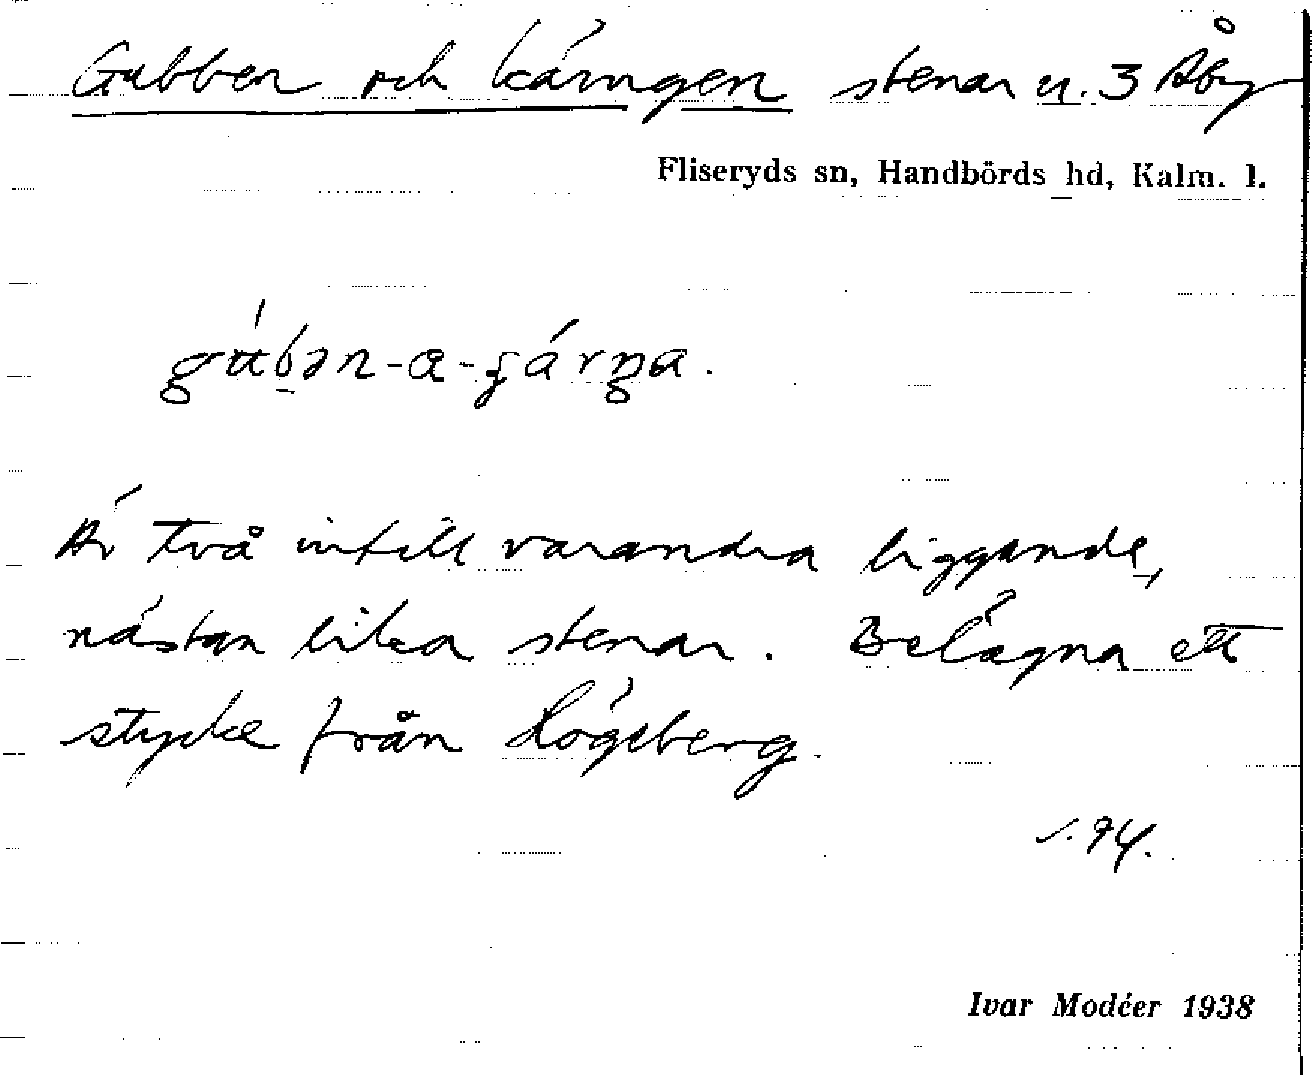 Gubben och käringen stenar u. 3 Åby
Fliseryds sn, Handbörds hd, Kalm. l.
Är två intill varandra liggande,
nästan lika stenar. Belägna ett
stycke från Rögsberg.
s. 94.
Ivar Modéer 1938